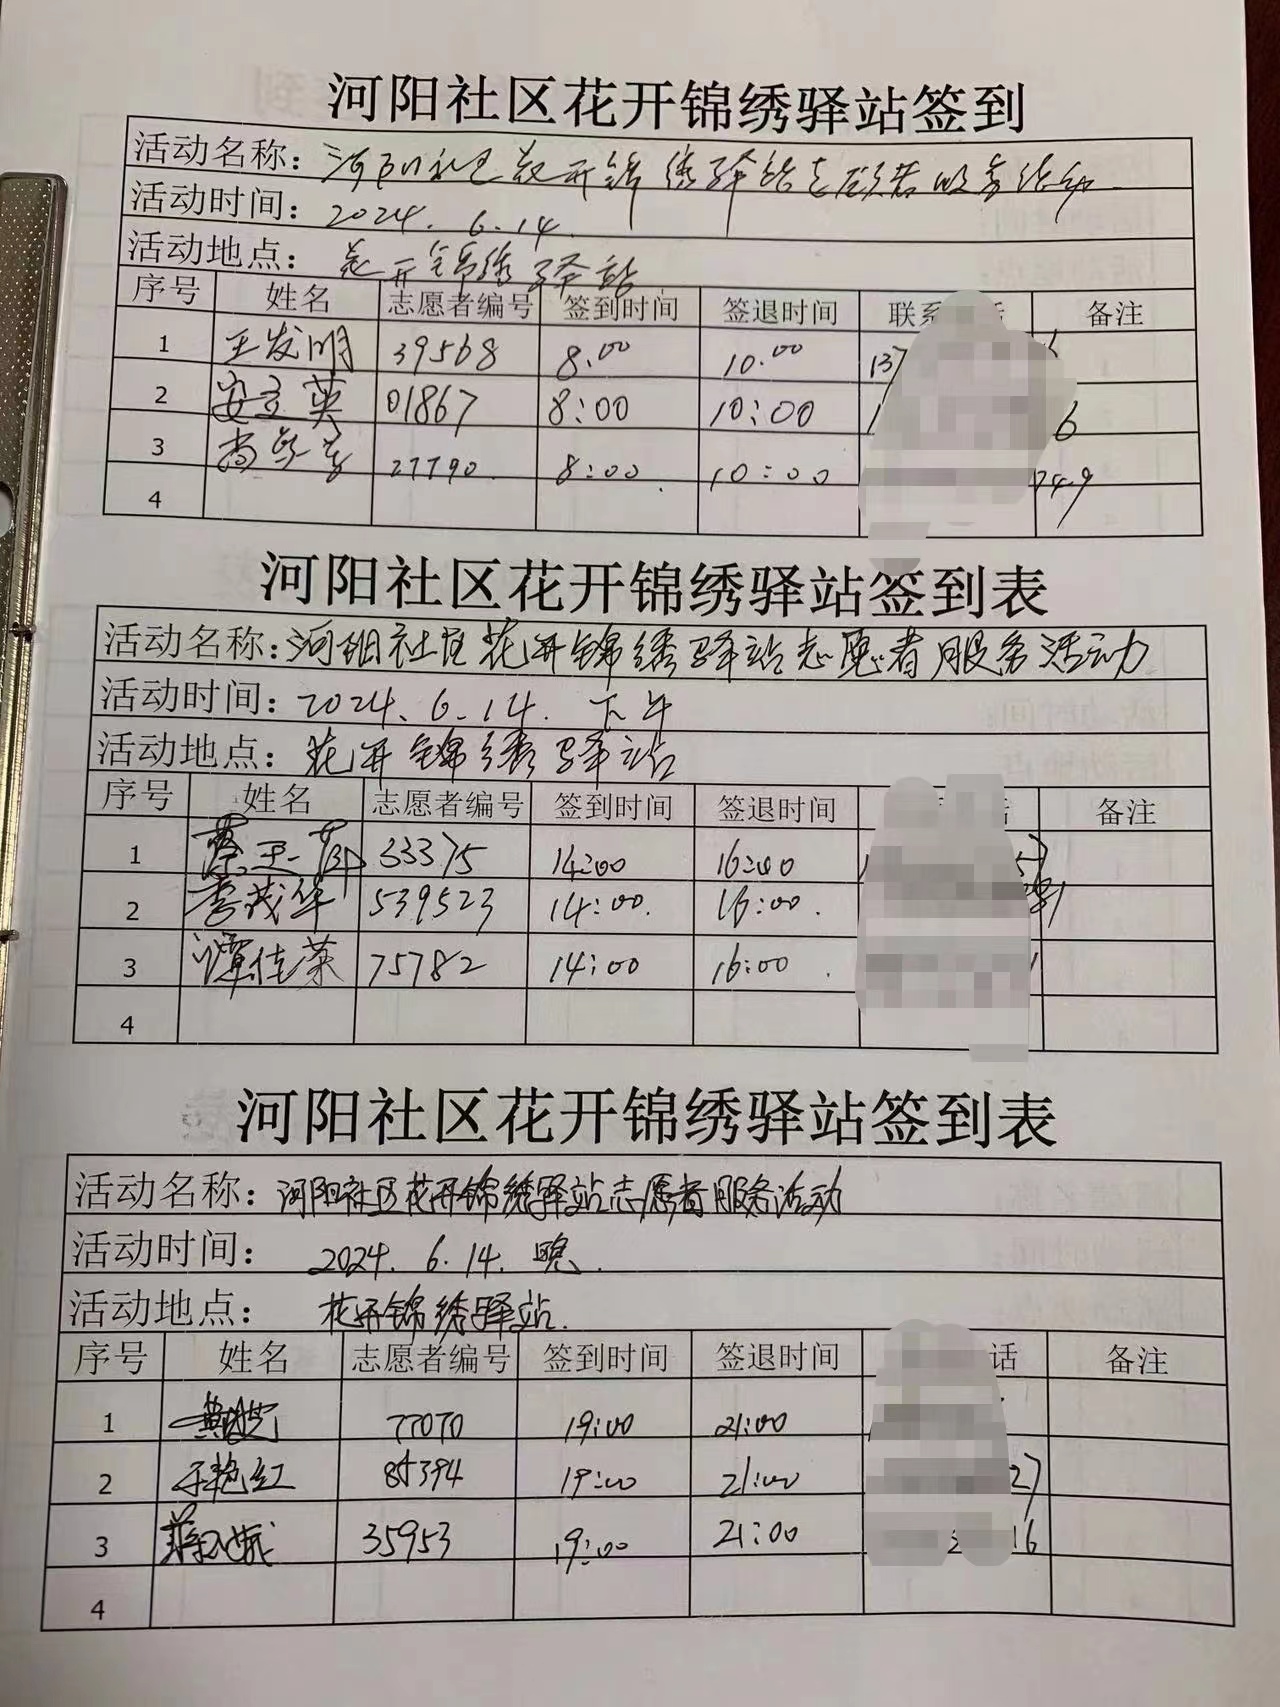 河阳社区花开锦绣驿站签到
活动名称：河阳社区花开锦绣驿站志愿者服务活动.
活动时间：2024.6.14.
活动地点：花开锦绣驿站
序号 姓名 志愿者编号 签到时间 签退时间 联系 话 备注
1 王发明 39568 8.00 10.00 137
2 安立英 01867 8:00 10:00 1 6
3 27790. 8:00. 10:00 749
4
河阳社区花开锦绣驿站签到表
活动名称：河阳社区花开锦绣驿站志愿者服务活动
活动时间：2024.6.14. 下午
活动地点：花开锦绣驿站
序号 姓名 志愿者编号 签到时间 签退时间 话 备注
1 蔡玉萍 33375 14:00 16:00 57
2 李茂华 539523 14:00. 16:00.
3 谭佳荣 75782 14:00 16:00.
4
河阳社区花开锦绣驿站签到表
活动名称：河阳社区花开锦绣驿站志愿者服务活动
活动时间：2024.6.14.晚.
活动地点：花开锦绣驿站.
序号 姓名 志愿者编号 签到时间 签退时间 话 备注
1 77070 19:00 21:00
2 于艳红 85394 19:00 21:00 27
3 35953 19:00 21:00 16
4